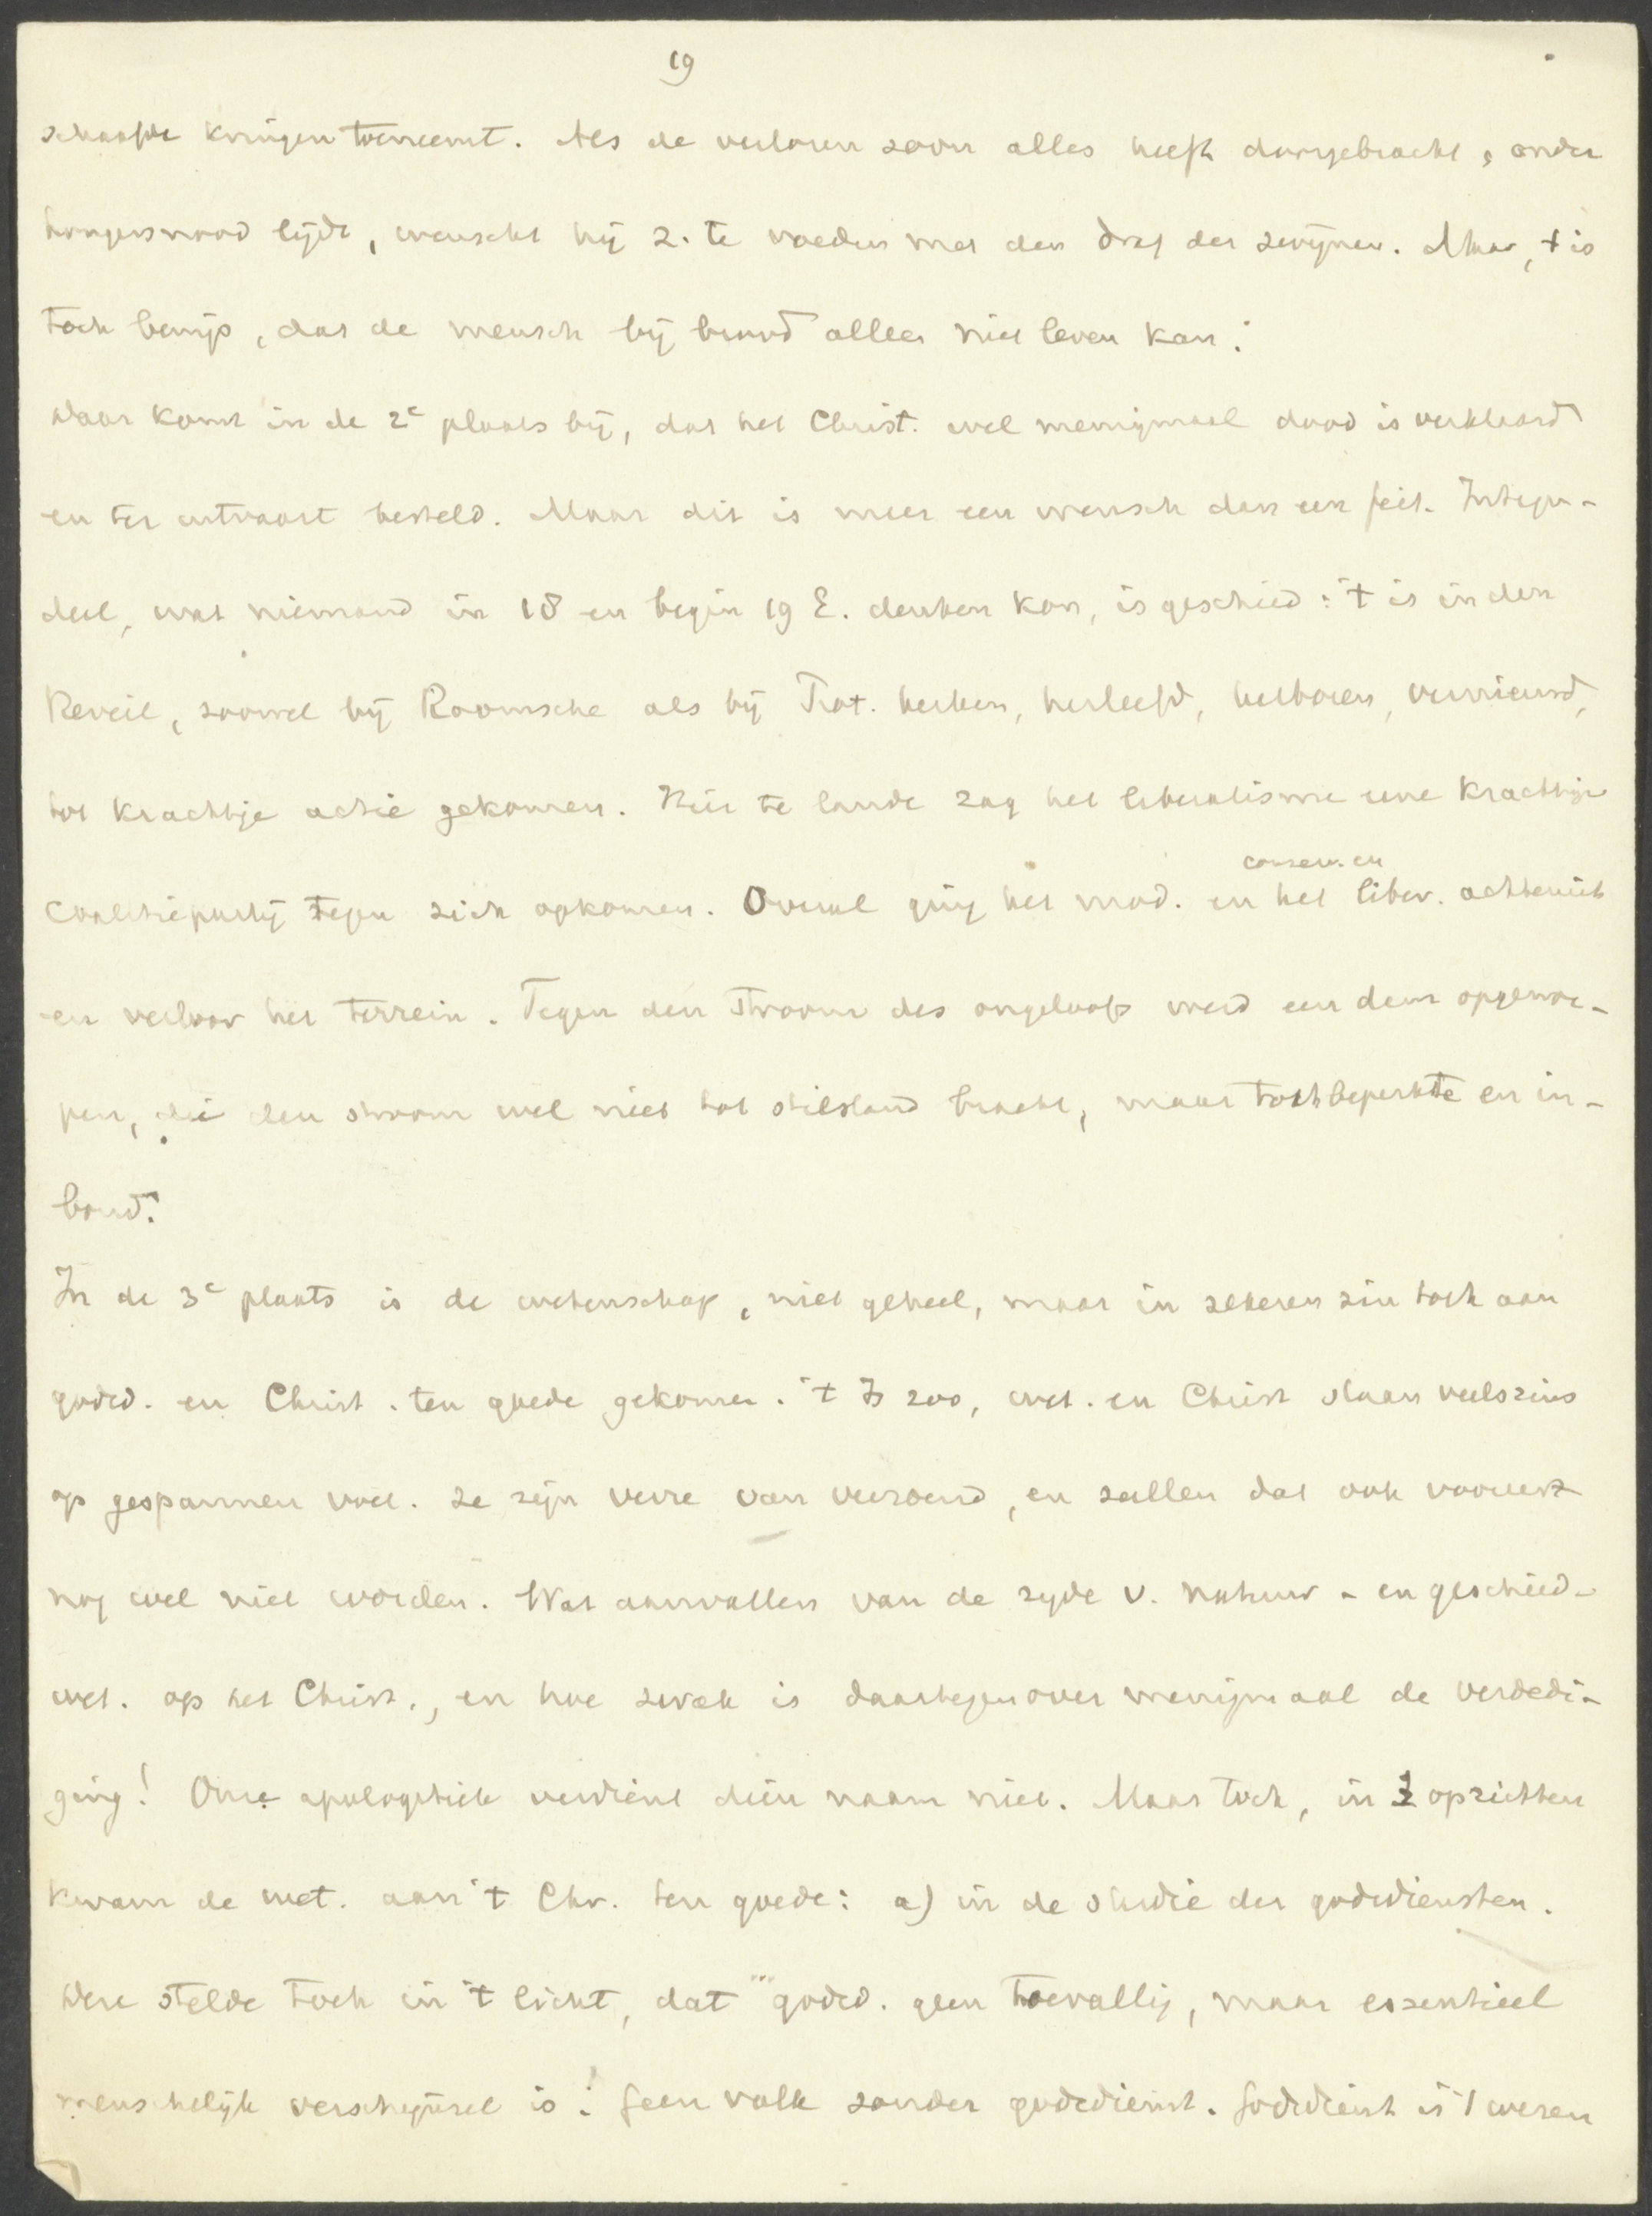 19
schaafde kringen toeneemt. Als de verloren zoon alles heeft doorgebracht, onder
hongersnood lijdt, wenscht hij z. te voeden met den draf der zwijnen. Maar, 't is
toch bewijs, dat de mensch bij brood alleen niet leven kan.
Daar komt in de 2e plaats bij, dat het Christ. wel menigmaal dood is verklaard
en ter uitvaart besteld. Maar dit is meer een wensch dan een feit. Integen-
deel, wat niemand in 18 en begin 19 E. denken kon, is geschied: 't is in den
Reveil, zoowel bij Roomsche als bij Prot. kerken, herleefd, herboren, vernieuwd,
tot krachtige actie gekomen. Hier te lande zag het liberalisme eene krachtige
conserv. en
coalitiepartij tegen zich opkomen. Overal ging het mod. en het liber. achteruit
en verloor het terrein. Tegen den stroom des ongeloofs werd een dam opgewor-
pen, die den stroom wel niet tot stilstand bracht, maar toch beperkte en in-
bond.
In de 3e plaats is de wetenschap, niet geheel, maar in zekeren zin toch aan
godsd. en Christ. ten goede gekomen. 't Is zoo, wet. en Christ staan veelszins
op gespannen voet. Ze zijn verre van verzoend, en zullen dat ook vooreerst
nog wel niet worden. Wat aanvallen van de zyde v. natuur- en geschied-
wet. op het Christ., en hoe zwak is daartegenover menigmaal de verdedi-
ging! Onze apologetiek verdient dien naam niet. Maar toch, in 2 opzichten
kwam de wet. aan 't Chr. ten goede: a) in de studie der godsdiensten.
Deze stelde toch in 't licht, dat godsd. geen toevallig, maar essentieel
menschelijk verschijnsel is: geen volk zonder godsdienst. Godsdienst is 't wezen